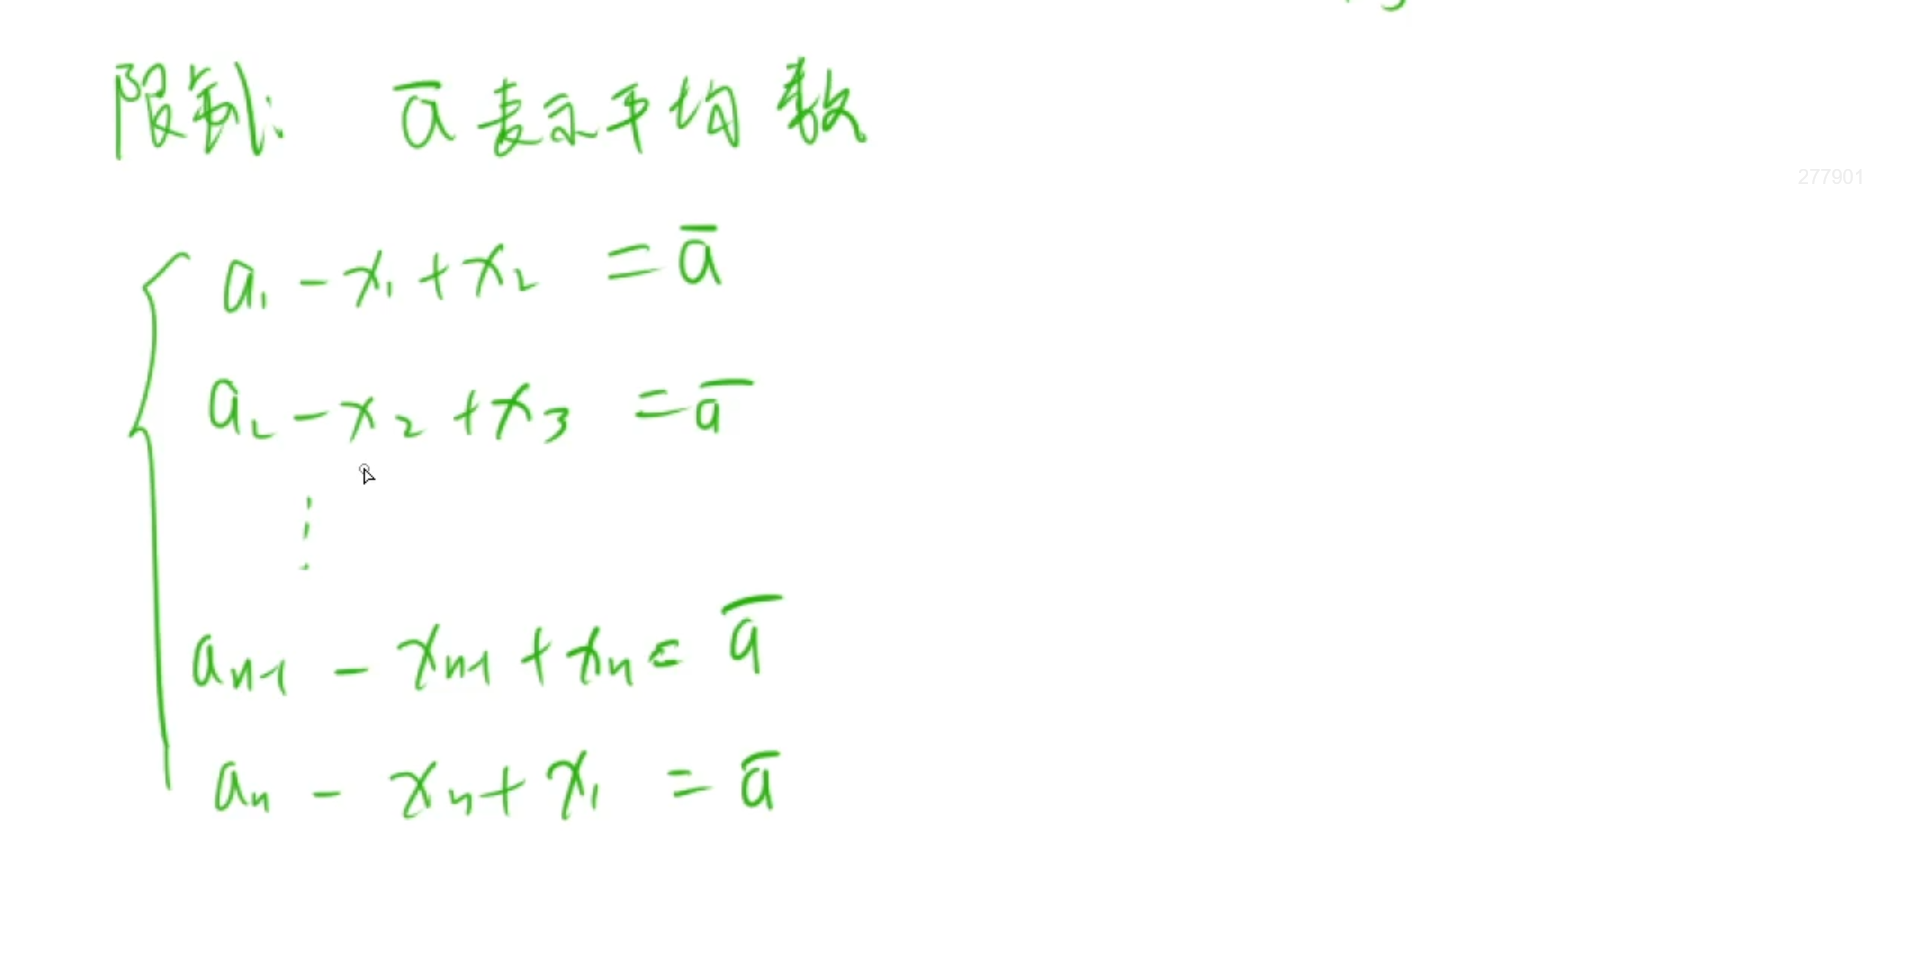 限制: ā 表示平均数
277901
a₁ - x₁ + x₂ = ā
a₂ - x₂ + x₃ = ā
⋮
aₙ₋₁ - xₙ₋₁ + xₙ = ā
aₙ - xₙ + x₁ = ā